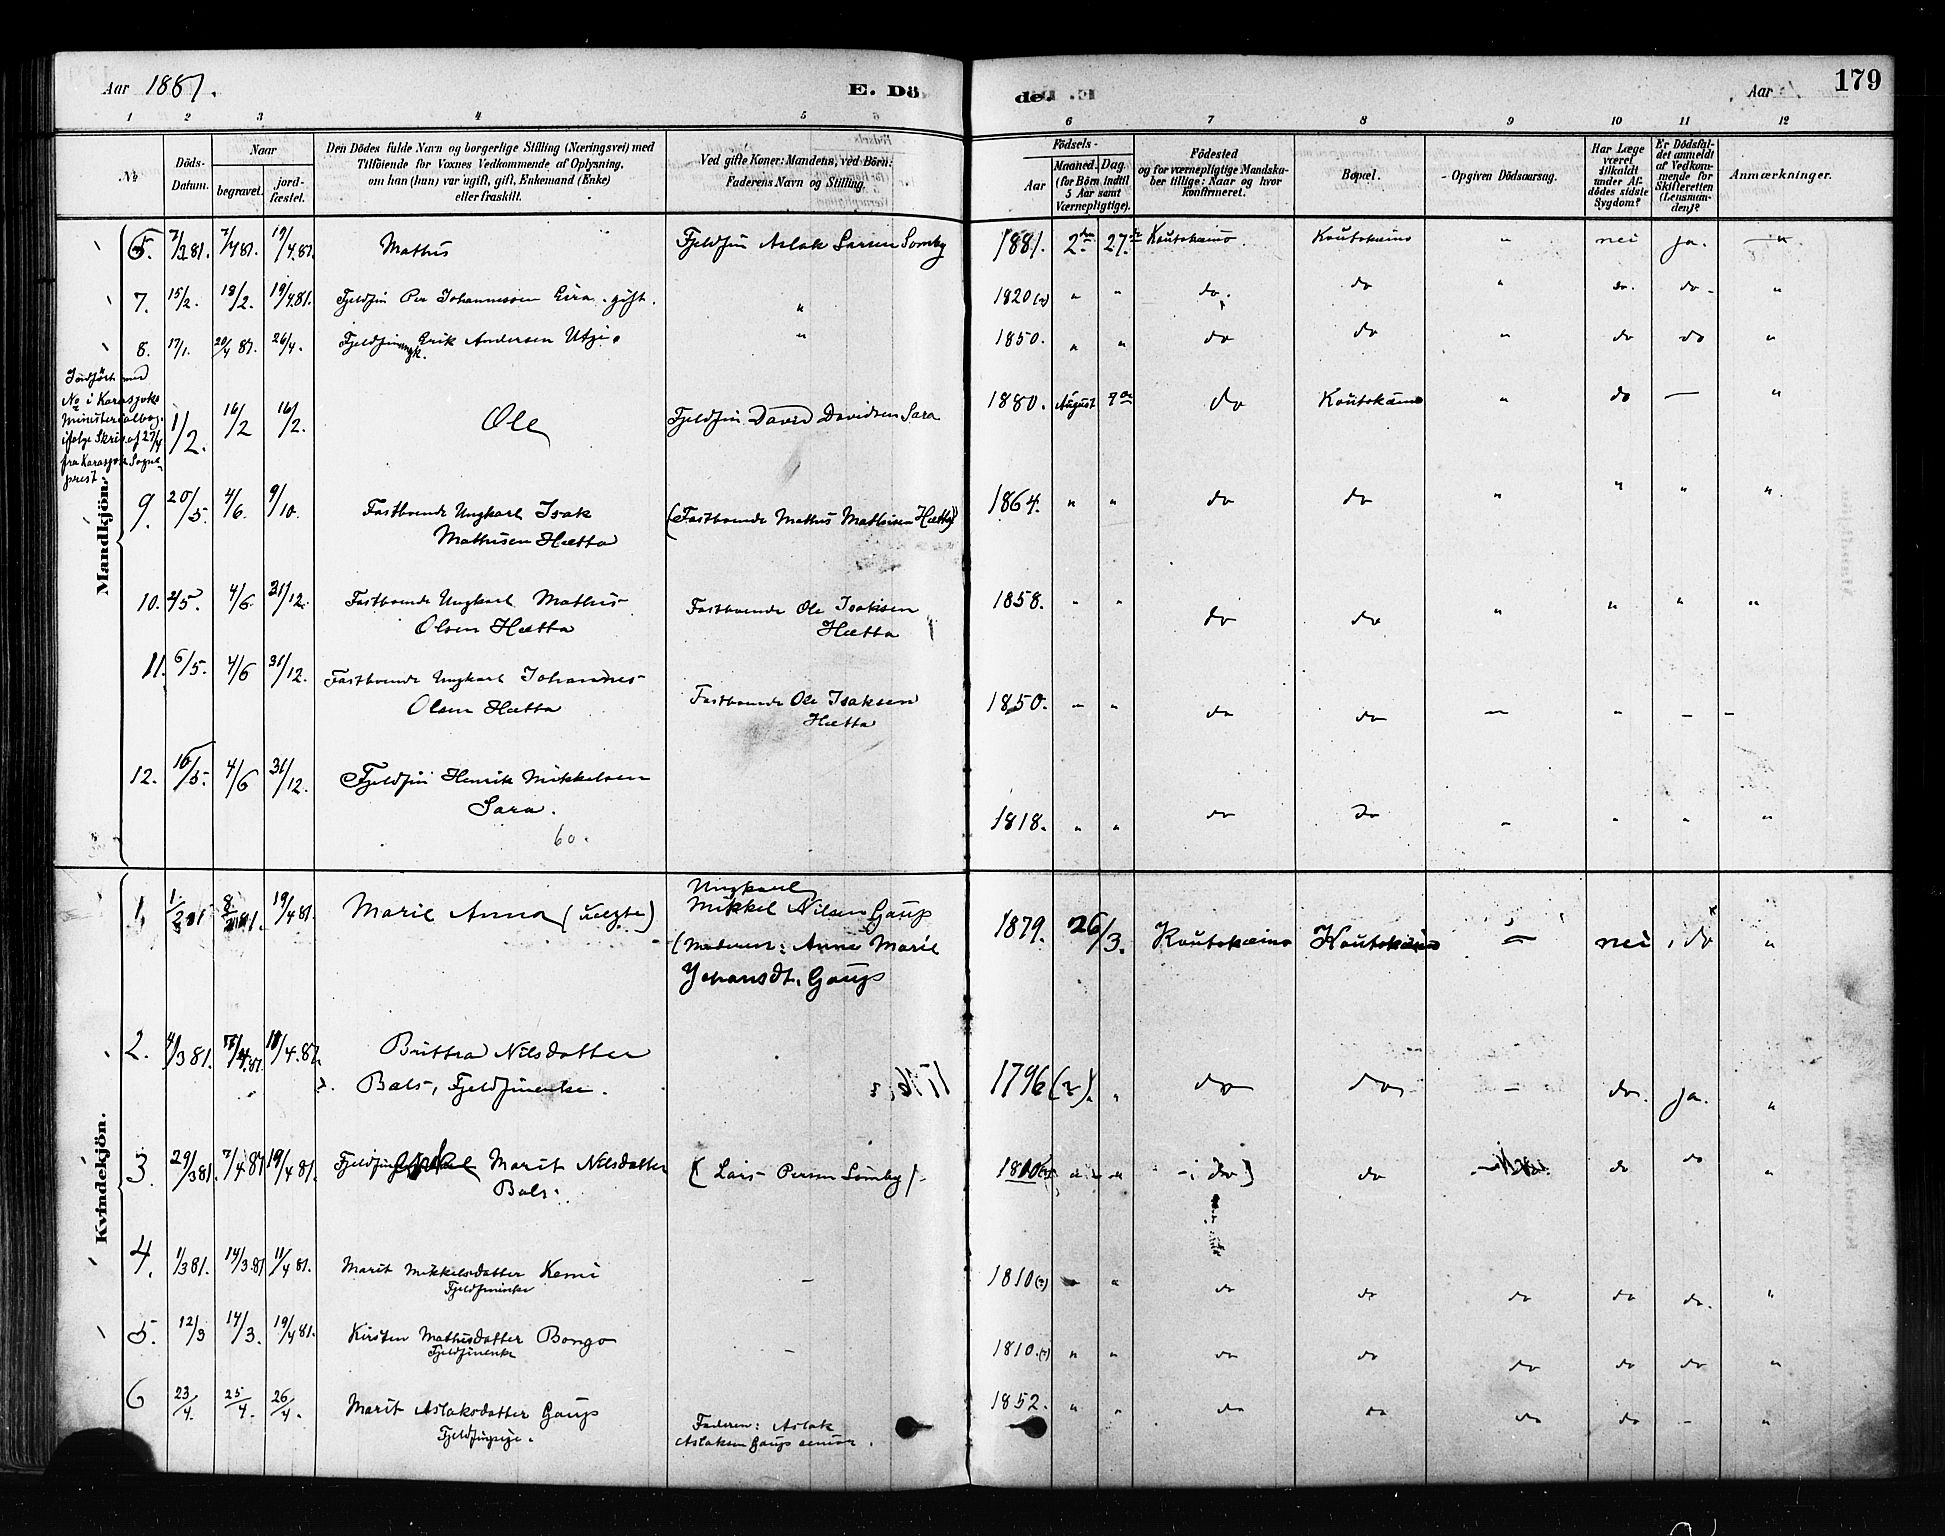 Aar 1881.
E. Dö
de.
Aar
179
1 2 3 4 5 6 7 8 9 10 11 12
No
Döds-Datum.
Naar
begravet.
jord-fæstet.
Den Dödes fulde Navn og borgerlige Stilling (Næringsvei) med
Tilföiende for Voxnes Vedkommende af Oplysning,
om han (hun) var ugift, gift, Enkemand (Enke)
eller fraskilt.
Ved gifte Koner: Mandens, ved Börn:
Faderens Navn og Stilling.
Födsels-
Aar
Maaned. Dag.
(for Börn indtil
5 Aar samt
Værnepligtige).
Födested
og for værnepligtige Mandska-
ber tillige: Naar og hvor
konfirmeret.
Bopæl.
Opgiven Dödsaarsag.
Har Læge
været
tilkaldt
under Af-
dödes sidste
Sygdom?
Er Dödsfal-
det anmeldt
af Vedkom-
mende for
Skifteretten
(Lensman-
den)?
Anmærkninger.
Mandkjön.
7/4 81. 19/4.81. Mathis Fjeldfin Aslak Larsen Somby 1881. 2den 27. Koutokeino. Koutokeino " nei ja. "
7. 15/2. 18/2. 19/4.81. Fjeldfin Per Johannesen Eira. gift. " 1820(?) " " do. do " do. do- "
8. 17/1. 20/4 81. 26/4. Fjeldfin ungk. Erik Andersen Utsi. " 1850. " " do do " do do "
Indført med
No i Karasjoks
Ministerialbog
ifølge Skriv. af 27/4
fra Karasjok Sogne-
prest
1/2. 16/2 16/2. Ole Fjeldfin David Davidsen Sara 1880. August do Koutokeino " do — "
9. 20/5. 4/6. 9/10. Fastboende Ungkarl Isak
Mathisen Hætta (Fastboende Mathis Mathisen Hætta) 1864. " " do do " " " ".
10. 2/5. 4/6. 31/12. Fastboende Ungkarl Mathis
Olsen Hætta Fastboende Ole Isaksen
Hætta 1858. " " do do " " " "
11. 6/5. 4/6 31/12. Fastboende Ungkarl Johannes
Olsen Hætta Fastboende Ole Isaksen
Hætta 1850. " " do do — " - -
12. 16/5. 4/6 31/12. Fjeldfin Henrik Mikkelsen
Sara. 1818. " " do do - " " "
60.
Kvindekjön.
1. 19/4 81. Marie Anna (uægte) Ungkarl
Mikkel Nilsen Gaup
(Moderen: Anne Marie
Johansdt. Gaup 1879. 26/3. Koutokeino Koutokeino — nei do "
2. Brittha Nilsdatter
Bals, Fjeldfinenke. 1796 (?) " " do do - do. ja. "
3. 29/3 81. 7/4.81 19/4 81. Marit Nilsdatter
Bals. (Lars Persen Somby) do do do do "
4. 1/3 81. 14/3.81 11/4 81. Marit Mikkelsdatter Kemi
Fjeldfinenke - 1810(?) " do do do do do. "
5. 12/3 14/3. 19/4 81. Kirsten Mathisdatter Bongo
Fjeldfinenke - 1810.(?) " " do do do do do "
6 23/4. 25/4. 26/4. Marit Aslaksdatter Gaup
Fjeldfinpige. Faderen: Aslak
Aslaksen Gaup senior. 1852. " " do do do do - "